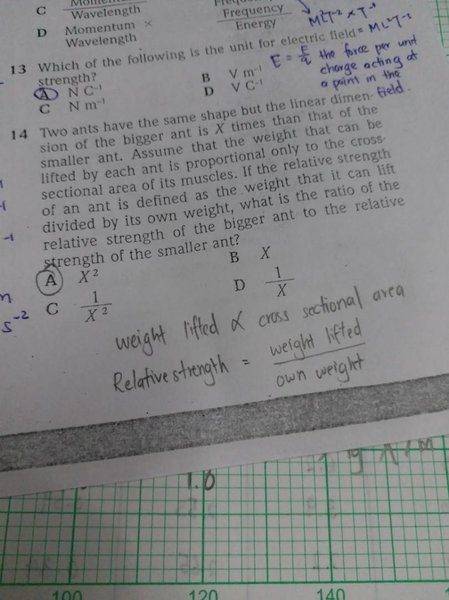 C Wavelength
Frequency
Energy
D Momentum ×
Wavelength
MLT⁻² × T⁻¹
= ML²T⁻²
13 Which of the following is the unit for electric field
strength?
A N C⁻¹
B V m⁻¹
C N m⁻¹
D V C⁻¹
E = F/q the force per unit
charge acting at
a point in the
field.
14 Two ants have the same shape but the linear dimen-
sion of the bigger ant is X times than that of the
smaller ant. Assume that the weight that can be
lifted by each ant is proportional only to the cross-
sectional area of its muscles. If the relative strength
of an ant is defined as the weight that it can lift
divided by its own weight, what is the ratio of the
relative strength of the bigger ant to the relative
strength of the smaller ant?
A X²
B X
C 1/X²
D 1/X
s⁻²
weight lifted ∝ cross sectional area
Relative strength = weight lifted
own weight
1.0
100
120
140